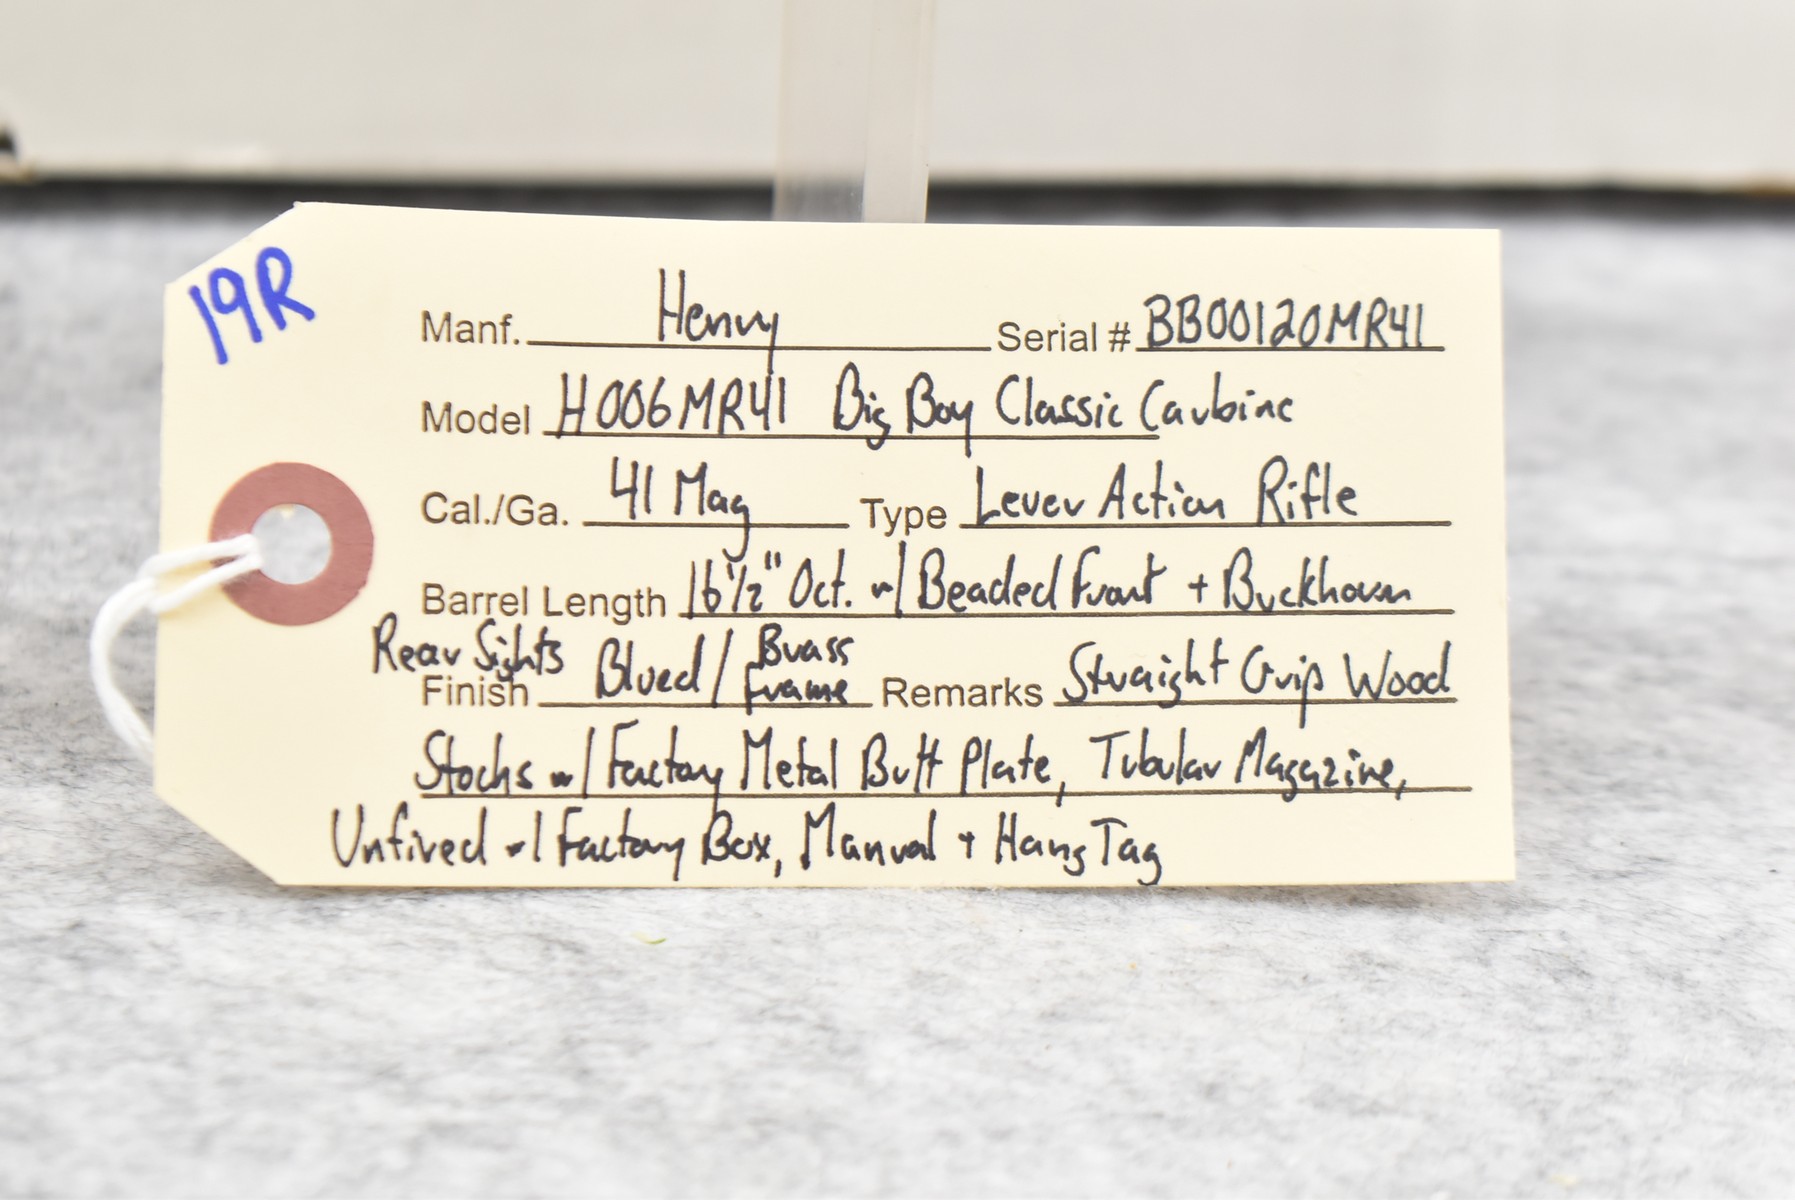 19R
Manf. Henry Serial # BB00120MR41
Model H006MR41 Big Boy Classic Carbine
Cal./Ga. 41 Mag Type Lever Action Rifle
Barrel Length 16 1/2" Oct. w/ Beaded Front + Buckhorn
Rear Sights
Finish Blued / Brass Frame Remarks Straight Grip Wood
Stocks w/ Factory Metal Butt Plate, Tubular Magazine,
Unfired w/ Factory Box, Manual + Hang Tag